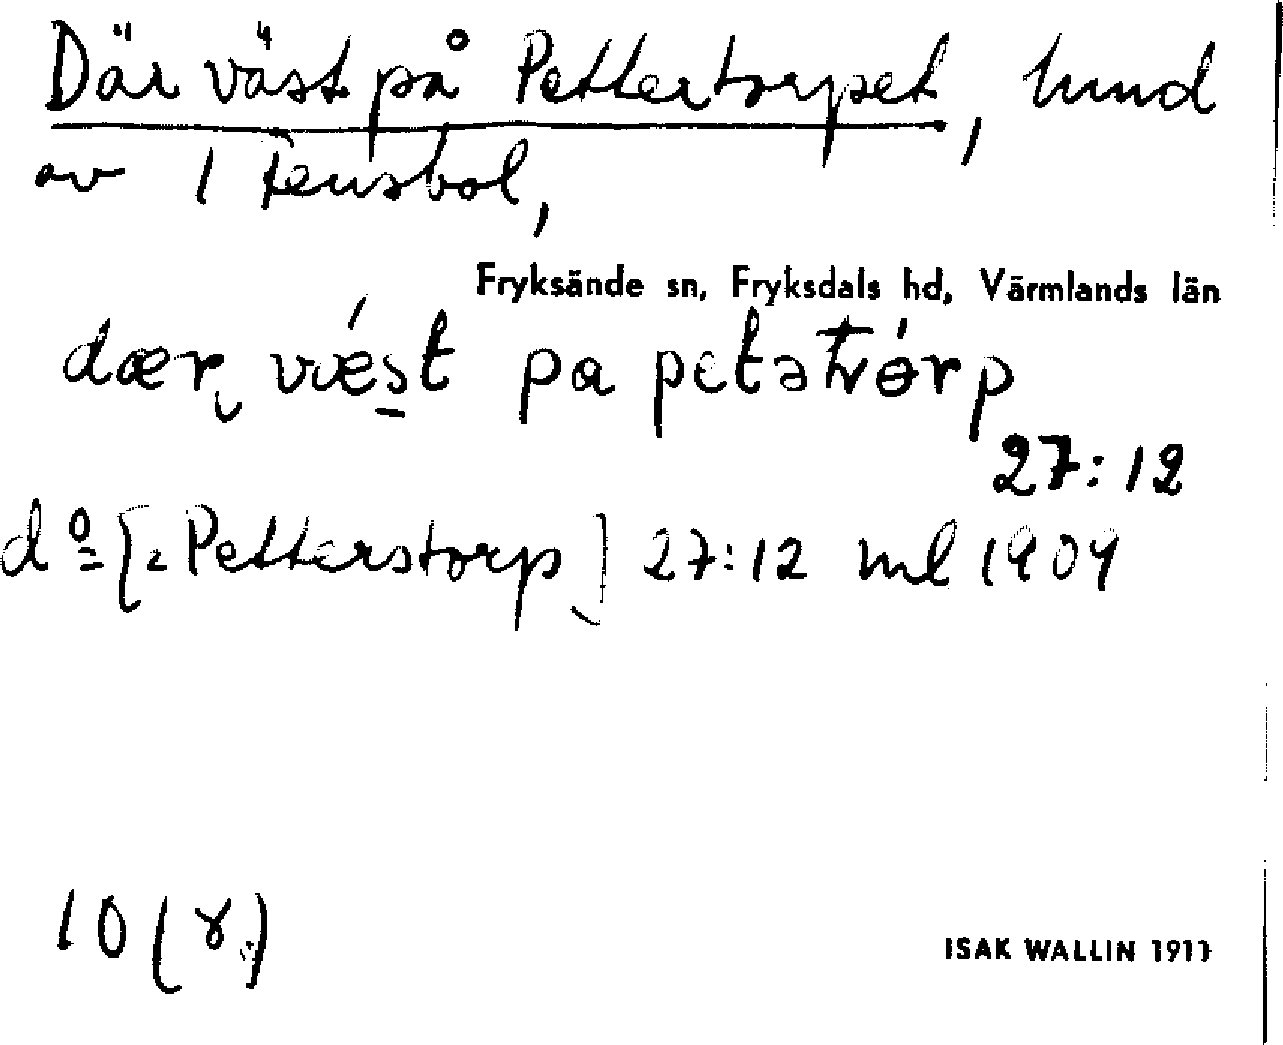 Där väst på Pettertorpet, lund
av 1 Tensbol,
Fryksände sn, Fryksdals hd, Värmlands län
pa
27:12
dº [= Petterstorp] 27:12 ml 1909
10 (γ.)
ISAK WALLIN 1911